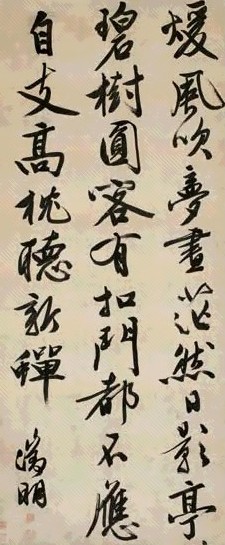 煖風吹夢晝茫然日影亭々
碧樹圓客有扣門都不應
自支高枕聽新蟬
徵明